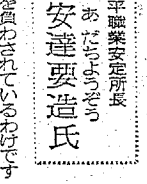 平職業安定所長
あだちようぞう
安達要造氏
を負わされているわけです